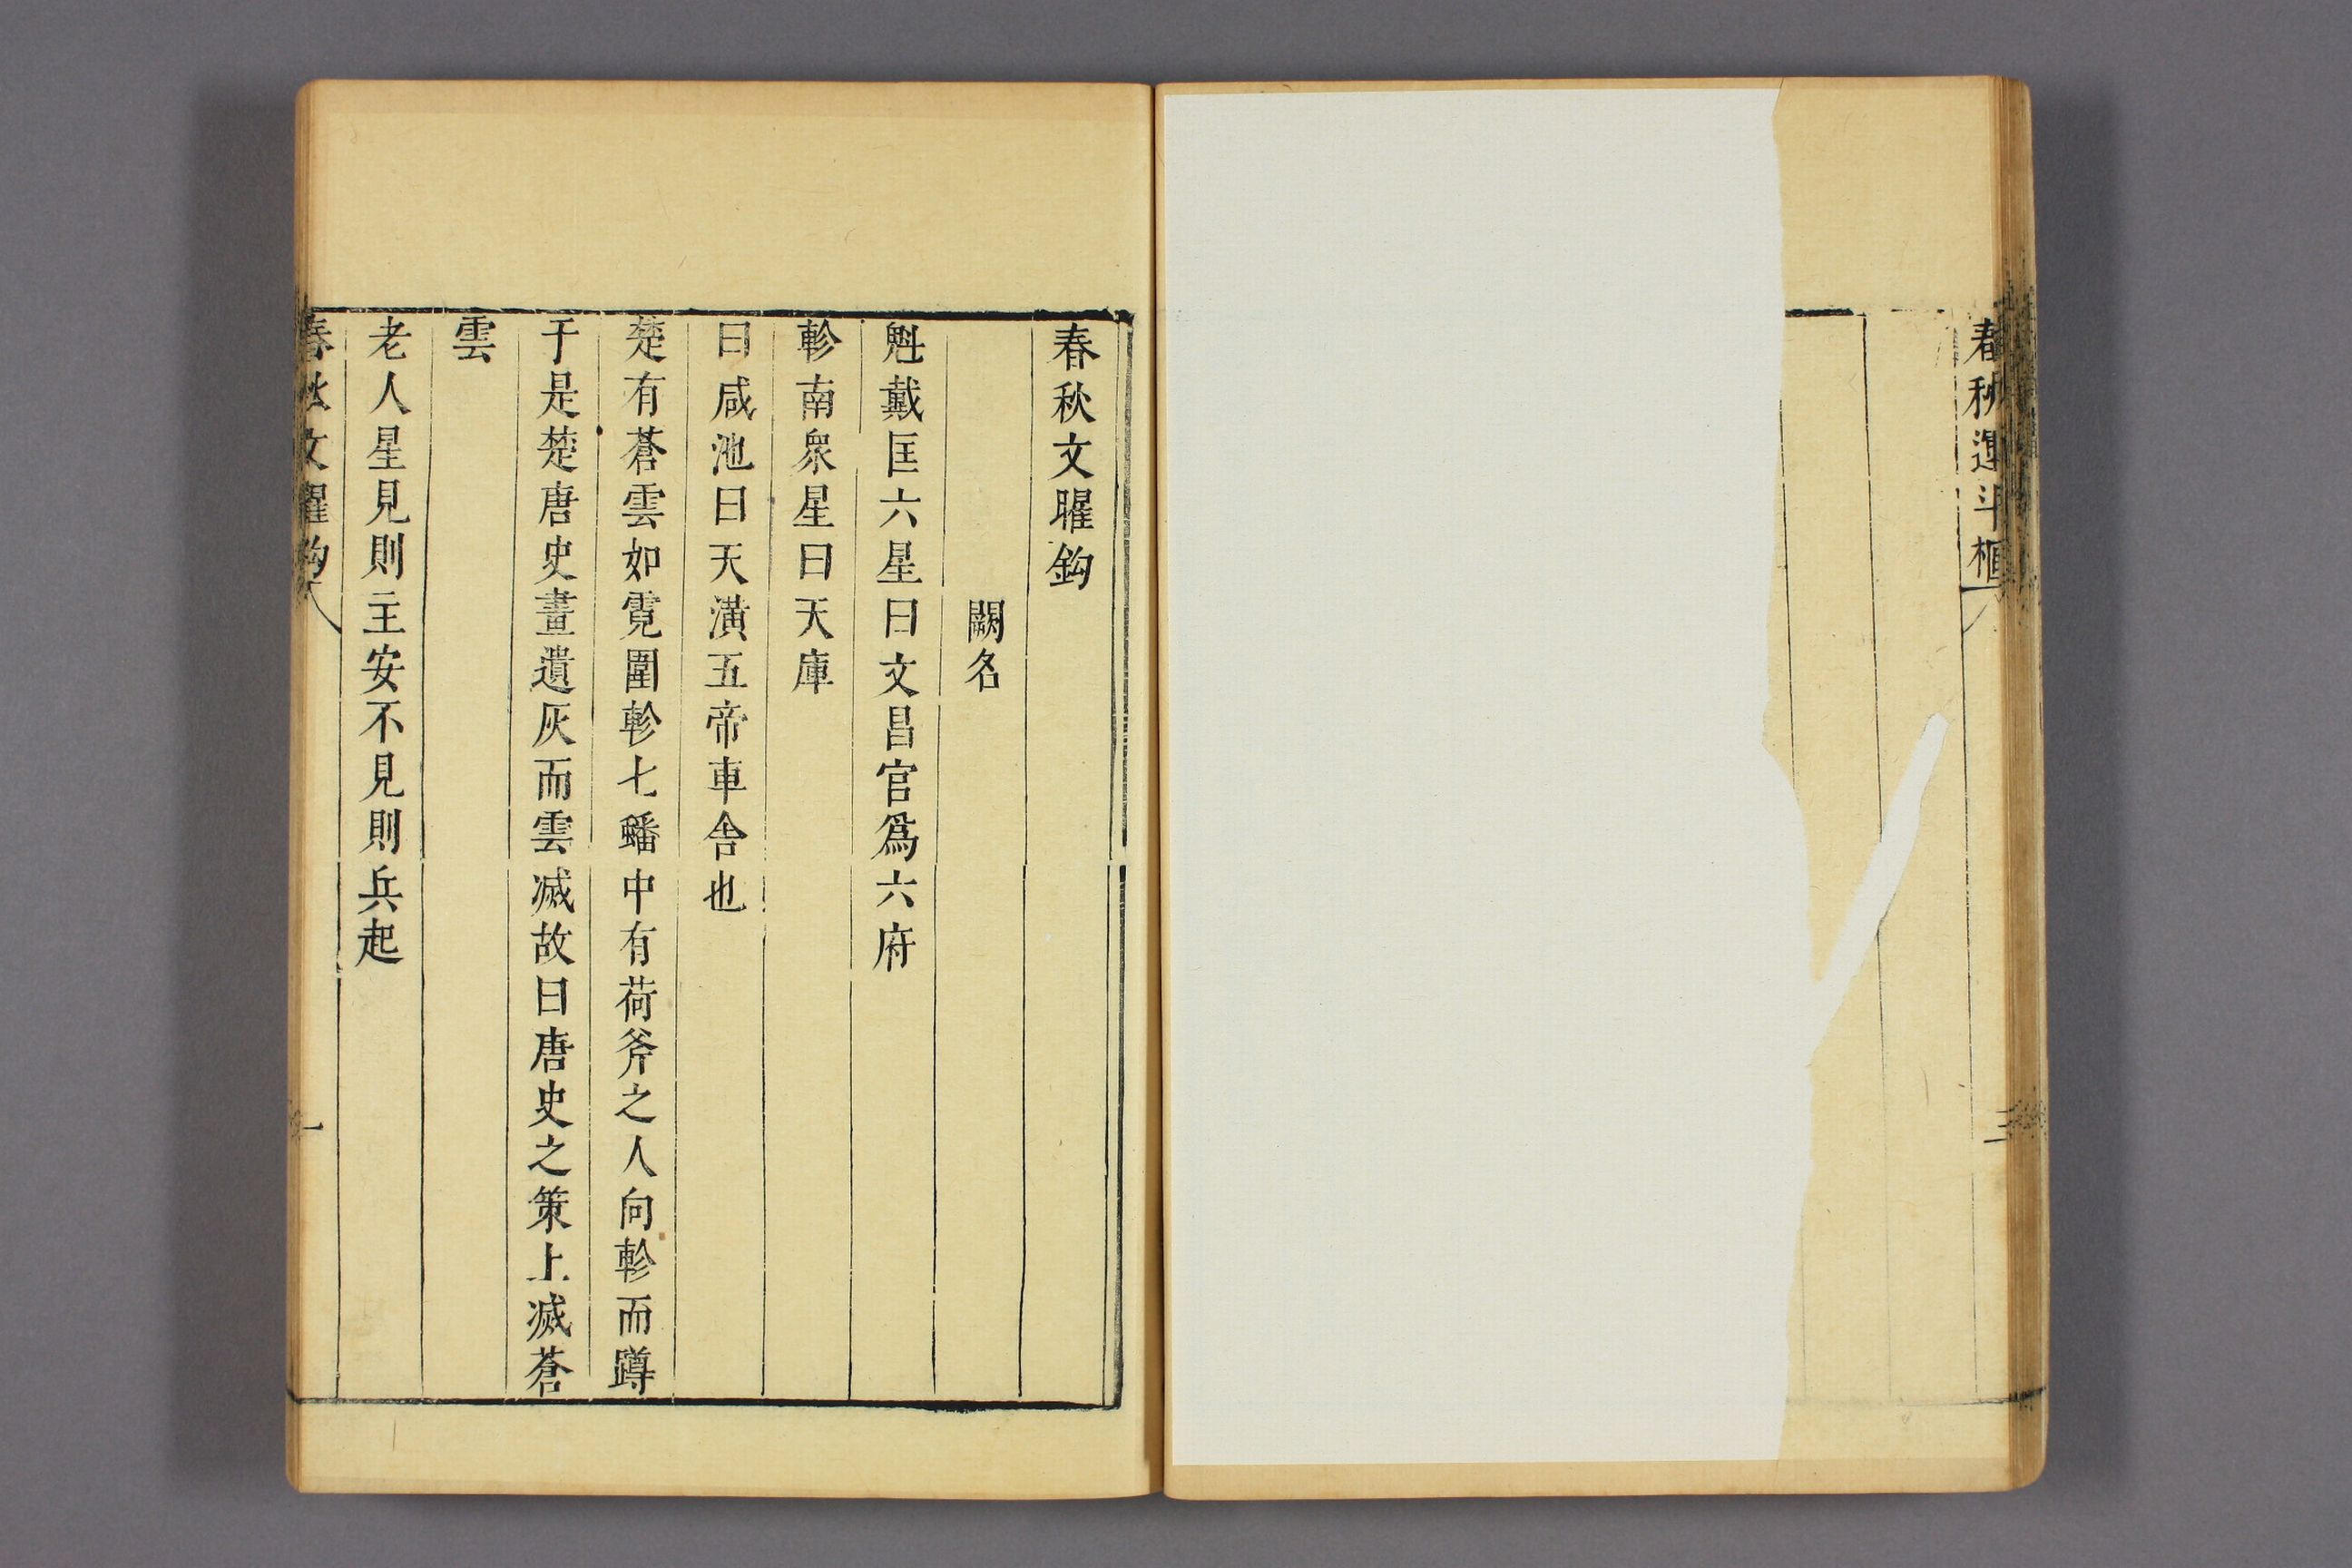 春秋運斗樞
三
春秋文曜鈎
闕名
魁戴匡六星曰文昌宮爲六府
軫南衆星曰天庫
曰咸池曰天潢五帝車舍也
楚有蒼雲如霓圍軫七蟠中有荷斧之人向軫而蹲
于是楚唐史畫遺灰而雲滅故曰唐史之策上滅蒼
雲
老人星見則主安不見則兵起
春秋文曜鈎
一